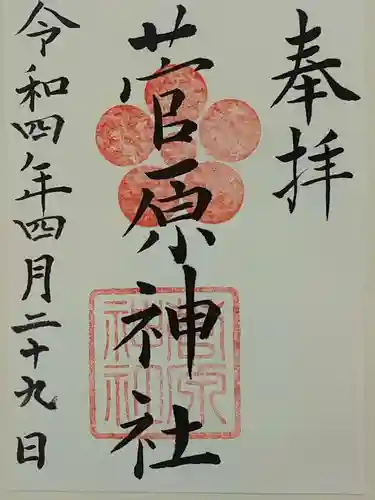 奉拝
菅原神社
菅原神社
令和四年四月二十九日